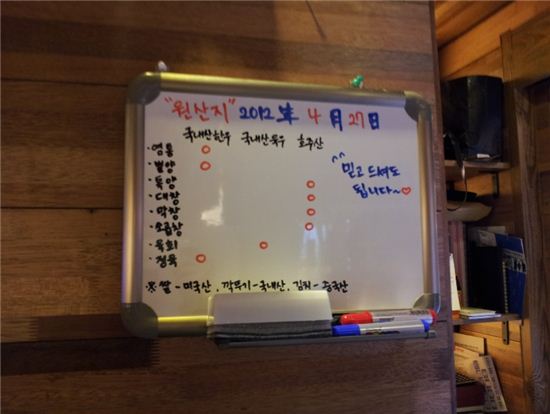 "원산지" 2012 年 4 月 27 日
국내산한우 국내산육우 호주산
·염통 ○
·벌양 ○
·특양 ○
·대창 ○
·막창 ○
·소곱창 ○
·육회 ○
·정육 ○
^^ 믿고 드셔도
됩니다~♡
※쌀-미국산, 깍뚜기-국내산, 김치-중국산